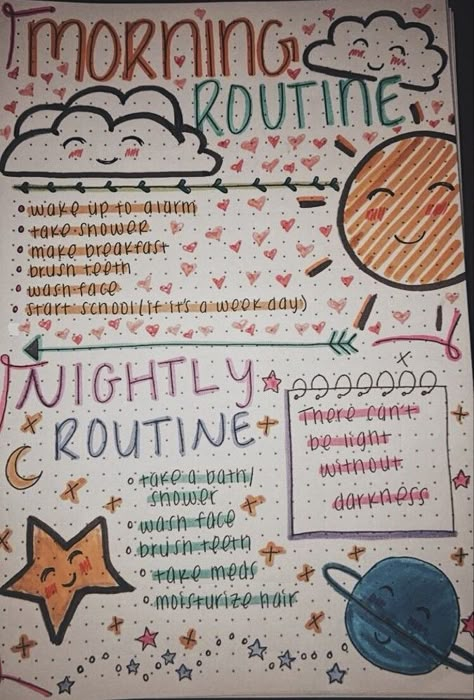 MORNING
ROUTINE
wake up to alarm
take shower
make breakfast
brush teeth
wash face
start school (if it's a weekday)
NIGHTLY
ROUTINE
take a bath/
shower
wash face
brush teeth
take meds
moisturize hair
There can't
be light
without
darkness